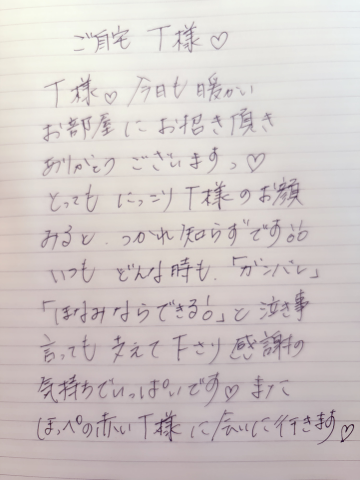 ご自宅 T様♡
T様♡今日も暖かい
お部屋にお招き頂き
ありがとうございますっ♡
とってもにっこりT様のお顔
みると、つかれ知らずです!!
いつもどんな時も、「ガンバレ」
「ほなみならできる!」と泣き事
言っても支えて下さり感謝の
気持ちでいっぱいです♡また
ほっぺの赤いT様に会いに行きます♡